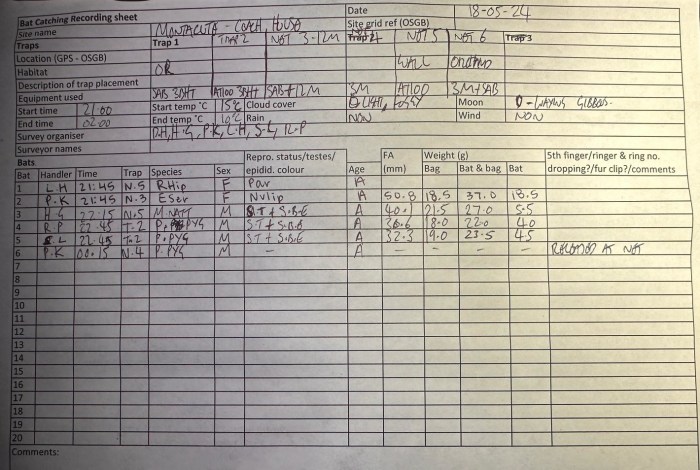 Bat Catching Recording sheet Date 18-05-24
Site name MONTACUTE - COACH HOUSE Site grid ref (OSGB)
Traps Trap 1 TRAP 2 NET 3-12M NET 5 NET 6 Trap 3
Location (GPS - OSGB) WALL ORCHARD
Habitat
Description of trap placement
Equipment used 3M AT100 3M+SAB
Start time 21:00 Start temp °C 15°C Cloud cover Moon
End time 02:00 End temp °C 10°C Rain NON Wind NON
Survey organiser D.H, H.G, P.K, L.H, S.L, R.P
Surveyor names
Bats Repro. status/testes/ FA Weight (g) 5th finger/ringer & ring no.
Bat Handler Time Trap Species Sex epidid. colour Age (mm) Bag Bat & bag Bat dropping?/fur clip?/comments
1 L.H 21:45 N.5 R.Hip F Par A
2 P.K 21:45 N.3 E.Ser F Nulip A 50.8 18.5 37.0 18.5
3 H.G 22:15 N.5 M.NATT M S.B.E A 40.1 21.5 27.0 5.5
4 R.P 22:45 T.2 P.PYG M ST+ S.B.E A 18.0 22.0 4.0
5 S.L 22:45 T.2 P.PYG M ST+ S.B.E A 32.3 19.0 23.5 4.5
6 P.K 00:15 N.4 P.PYG M – A – – – – RELEASED AT NET
7
8
9
10
11
12
13
14
15
16
17
18
19
20
Comments: